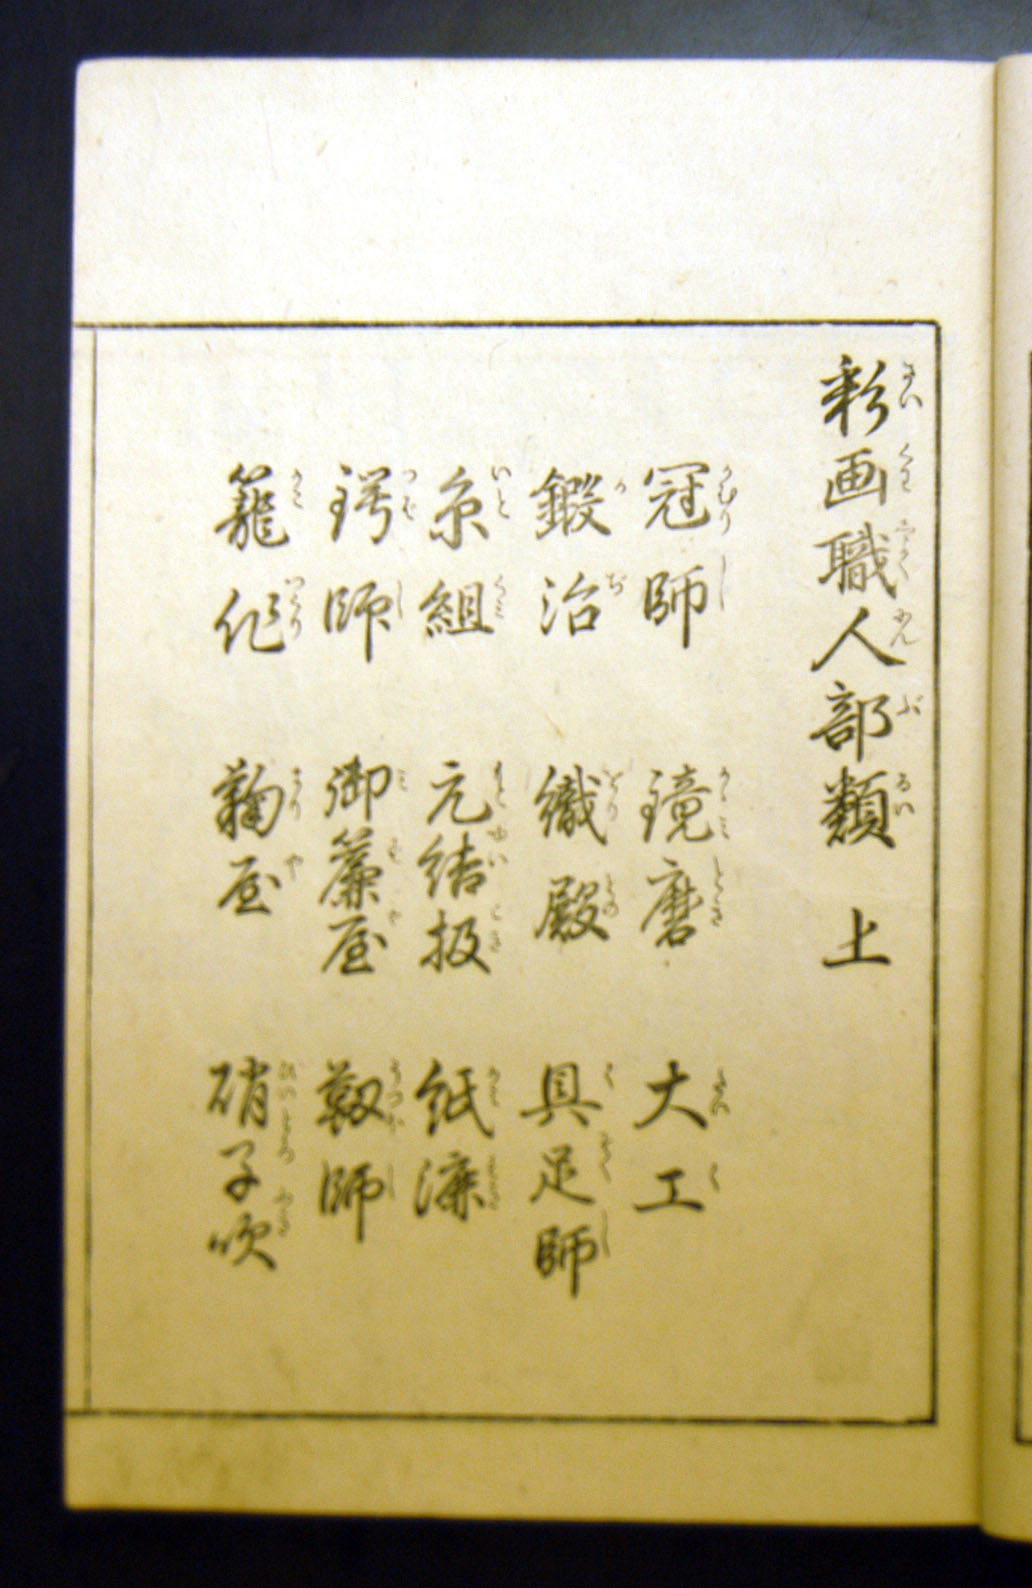 彩画職人部類 上
冠師 鏡磨 大工
鍛冶 織殿 具足師
糸組 元結扱 紙漉
鍔師 御簾屋 靱師
籠作 鞠屋 硝子吹